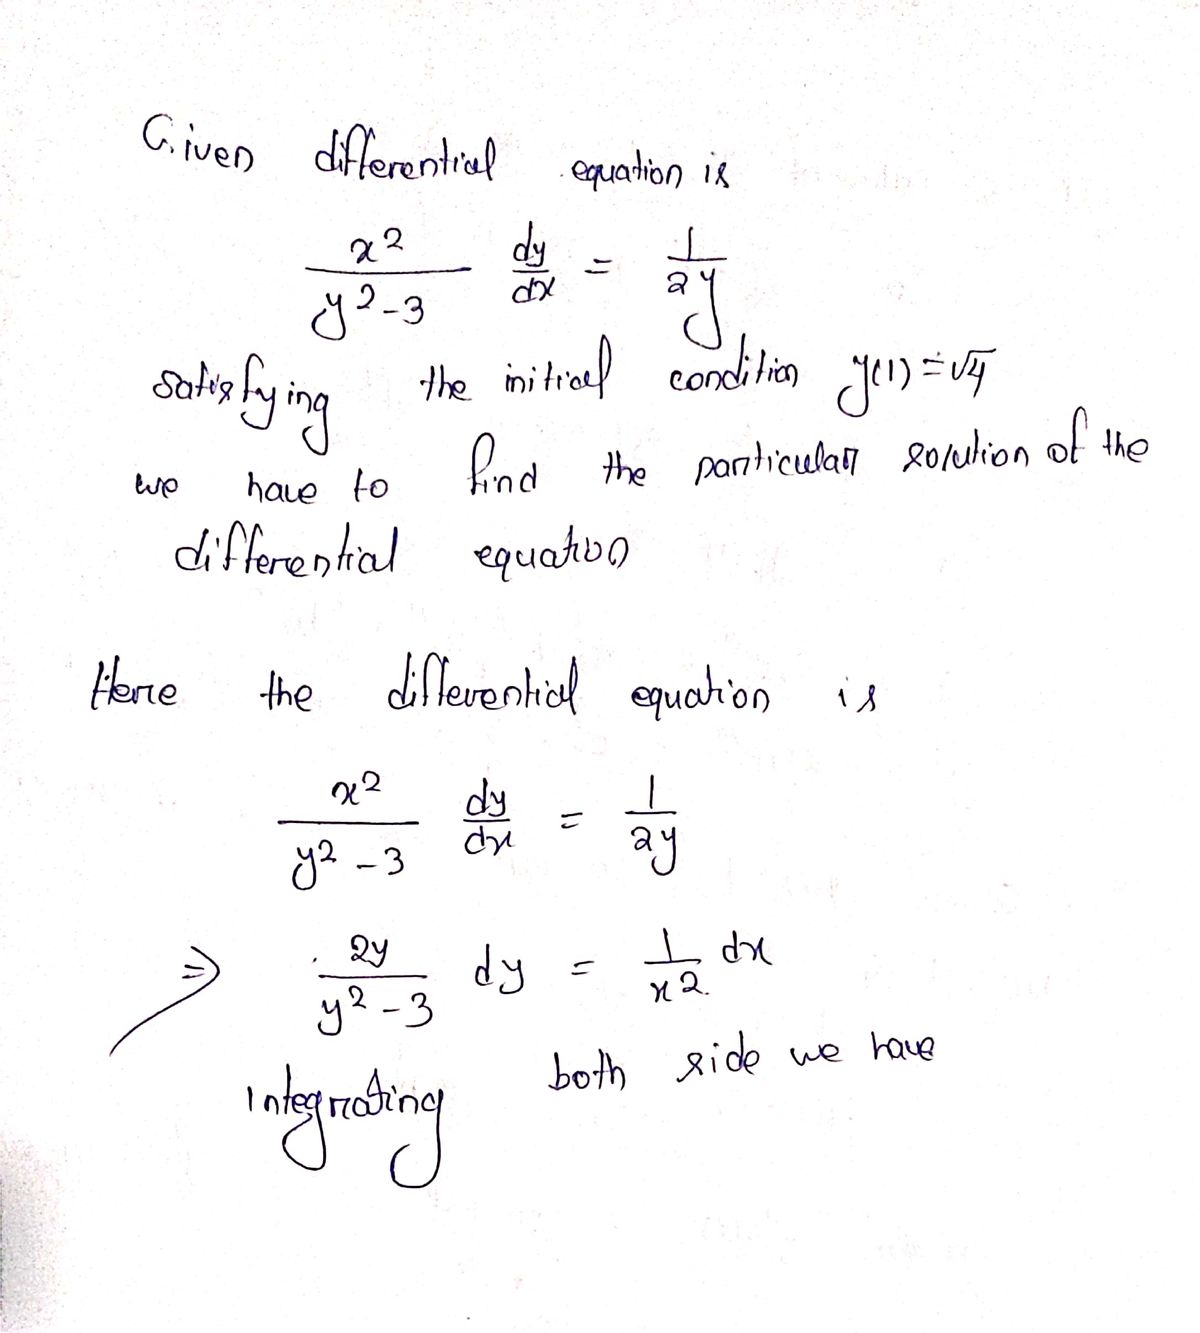 Given differential equation is
x²/(y²-3) dy/dx = 1/2y
satisfying the initial condition y(1) = √4
we have to find the particular solution of the
differential equation
Here the differential equation is
x²/(y²-3) dy/dx = 1/2y
⇒ 2y/(y²-3) dy = 1/x² dx
Integrating both side we have